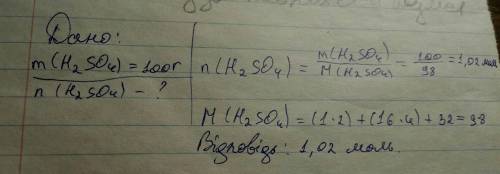 Дано:
m(H₂SO₄) = 100г
n(H₂SO₄) - ?
n(H₂SO₄) = m(H₂SO₄)/M(H₂SO₄) = 100/98 = 1,02 моль
M(H₂SO₄) = (1·2) + (16·4) + 32 = 98
Відповідь: 1,02 моль.